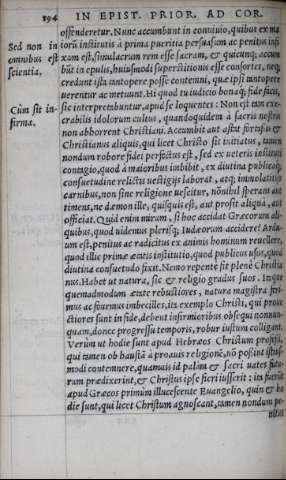 194 IN EPIST. PRIOR. AD COR.
Sed non in
omnibus est
scientia,
Cùm sit in-
firma.
offenderetur. Nunc accumbunt in conuiuio, quibus ex ma
iorũ institutis à prima pueritia persuasum ac penitus infi
xum est, simulacrum rem esse sacram, & quicunq; accum
būt in epulis, huiusmodi superstitionis esse consortes, neq;
credunt ista tantopere posse contemni, quæ ipsi tantopere
uerentur ac metuunt. Hi quod tu iudicio bonaq; fide facis,
sic interpretabuntur, apud se loquentes: Non est tam exe-
crabilis idolorum cultus, quandoquidem à sacris nostris
non abhorrent Christiani. Accumbit aut istic fortasis &
Christianus aliquis, qui licet Christo sit initiatus, tamen
nondum robore fidei perfectus est, sed ex ueteris instituti
contagio, quod à maioribus imbibit, ex diutina publicaq;
consuetudine relictis uestigijs laborat, atq; immolatitijs
carnibus, non sine religione uescitur, nōnihil sperans aut
timens, ne dæmon ille, quisquis est, aut prosit aliquā, aut
officiat. Quid enim mirum, si hoc accidat Græcorum ali-
quibus, quod uidemus plerisq; Iudæorum accidere? Ardu-
um est, penitus ac radicitus ex animis hominum reuellere,
quod illic primæ ætatis institutio, quod publicus usus, quod
diutina consuetudo fixit. Nemo repente fit plenè Christia
nus. Habet ut natura, sic & religio gradus suos. Itaque
quemadmodum ætate robustiores, natura magistra feri-
mus ac fouemus imbecilles, ita exemplo Christi, qui prouectiores sunt in fide, debent infirmioribus obsequi nonnun-
quam, donec progressu temporis, robur iustum colligant.
Verùm ut hodie sunt apud Hebræos Christum professi,
qui tamen ob haustā à proauis religionē, nō possint istius-
modi contemnere, quamuis id palàm & sacri uates futu-
ram prædixerint, & Christus ipse fieri iusserit: ita fuerūt
apud Græcos primùm illucescente Euangelio, quin & ho
die sunt, qui licet Christum agnoscant, tamen nondum pe-
nitus